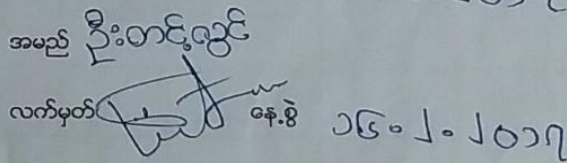 အမည် ဦးတင့်လွင်
လက်မှတ် နေ့စွဲ ၁၆.၂.၂၀၁၇